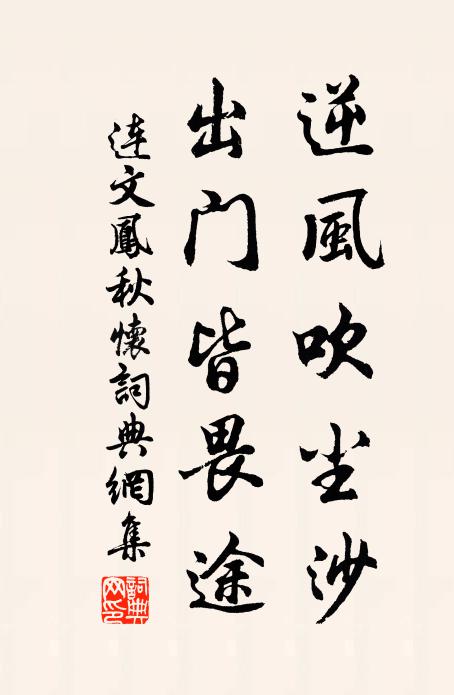 逆風吹尘沙
出门皆畏途
連文鳳秋懷詞典網集
詞典
网印